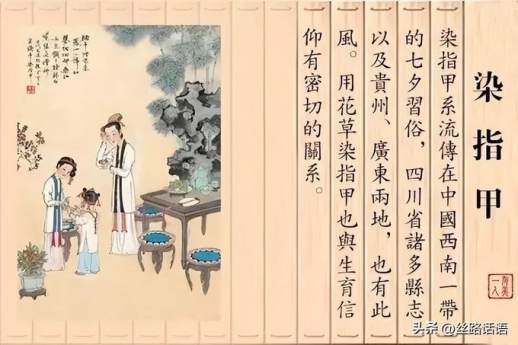 染指甲
染指甲系流傳在中國西南一帶
的七夕習俗，四川省諸多縣志
以及貴州、廣東兩地，也有此
風。用花草染指甲也與生育信
仰有密切的關系。
头条 @丝路话语